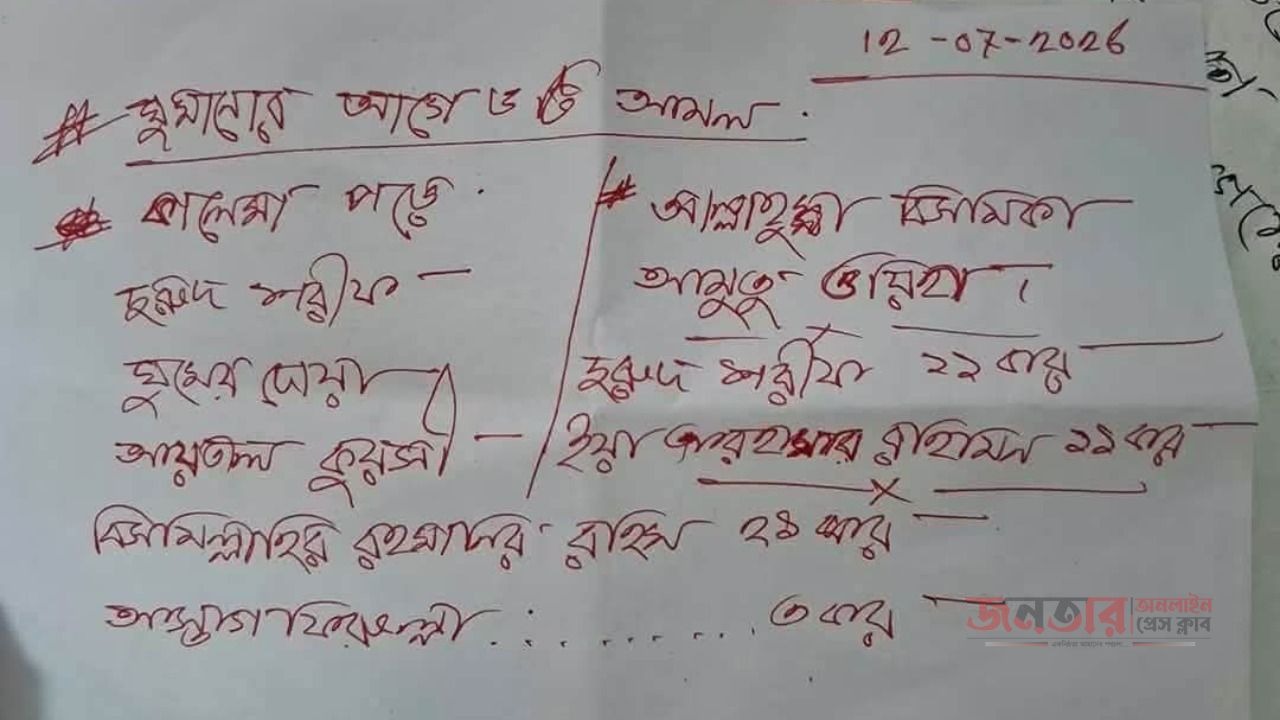 12-07-2026
# ঘুমানোর আগে ৬ টি আমল.
কালেমা পড়ে.
দুরুদ শরীফ —
ঘুমের দোয়া
আয়তাল কুরসী —
# আল্লাহুম্মা বিসমিকা
আমুতু ওয়িহা ।
দুরুদ শরীফ ১১ বার
ইয়া আরহামার রাহিমিন ১১ বার
বিসমিল্লাহির রহমানির রাহিম ২১ বার —
আস্তাগফিরুল্লা . : . . . . . . . . ৩ বার —
জনতার অনলাইন
প্রেস ক্লাব